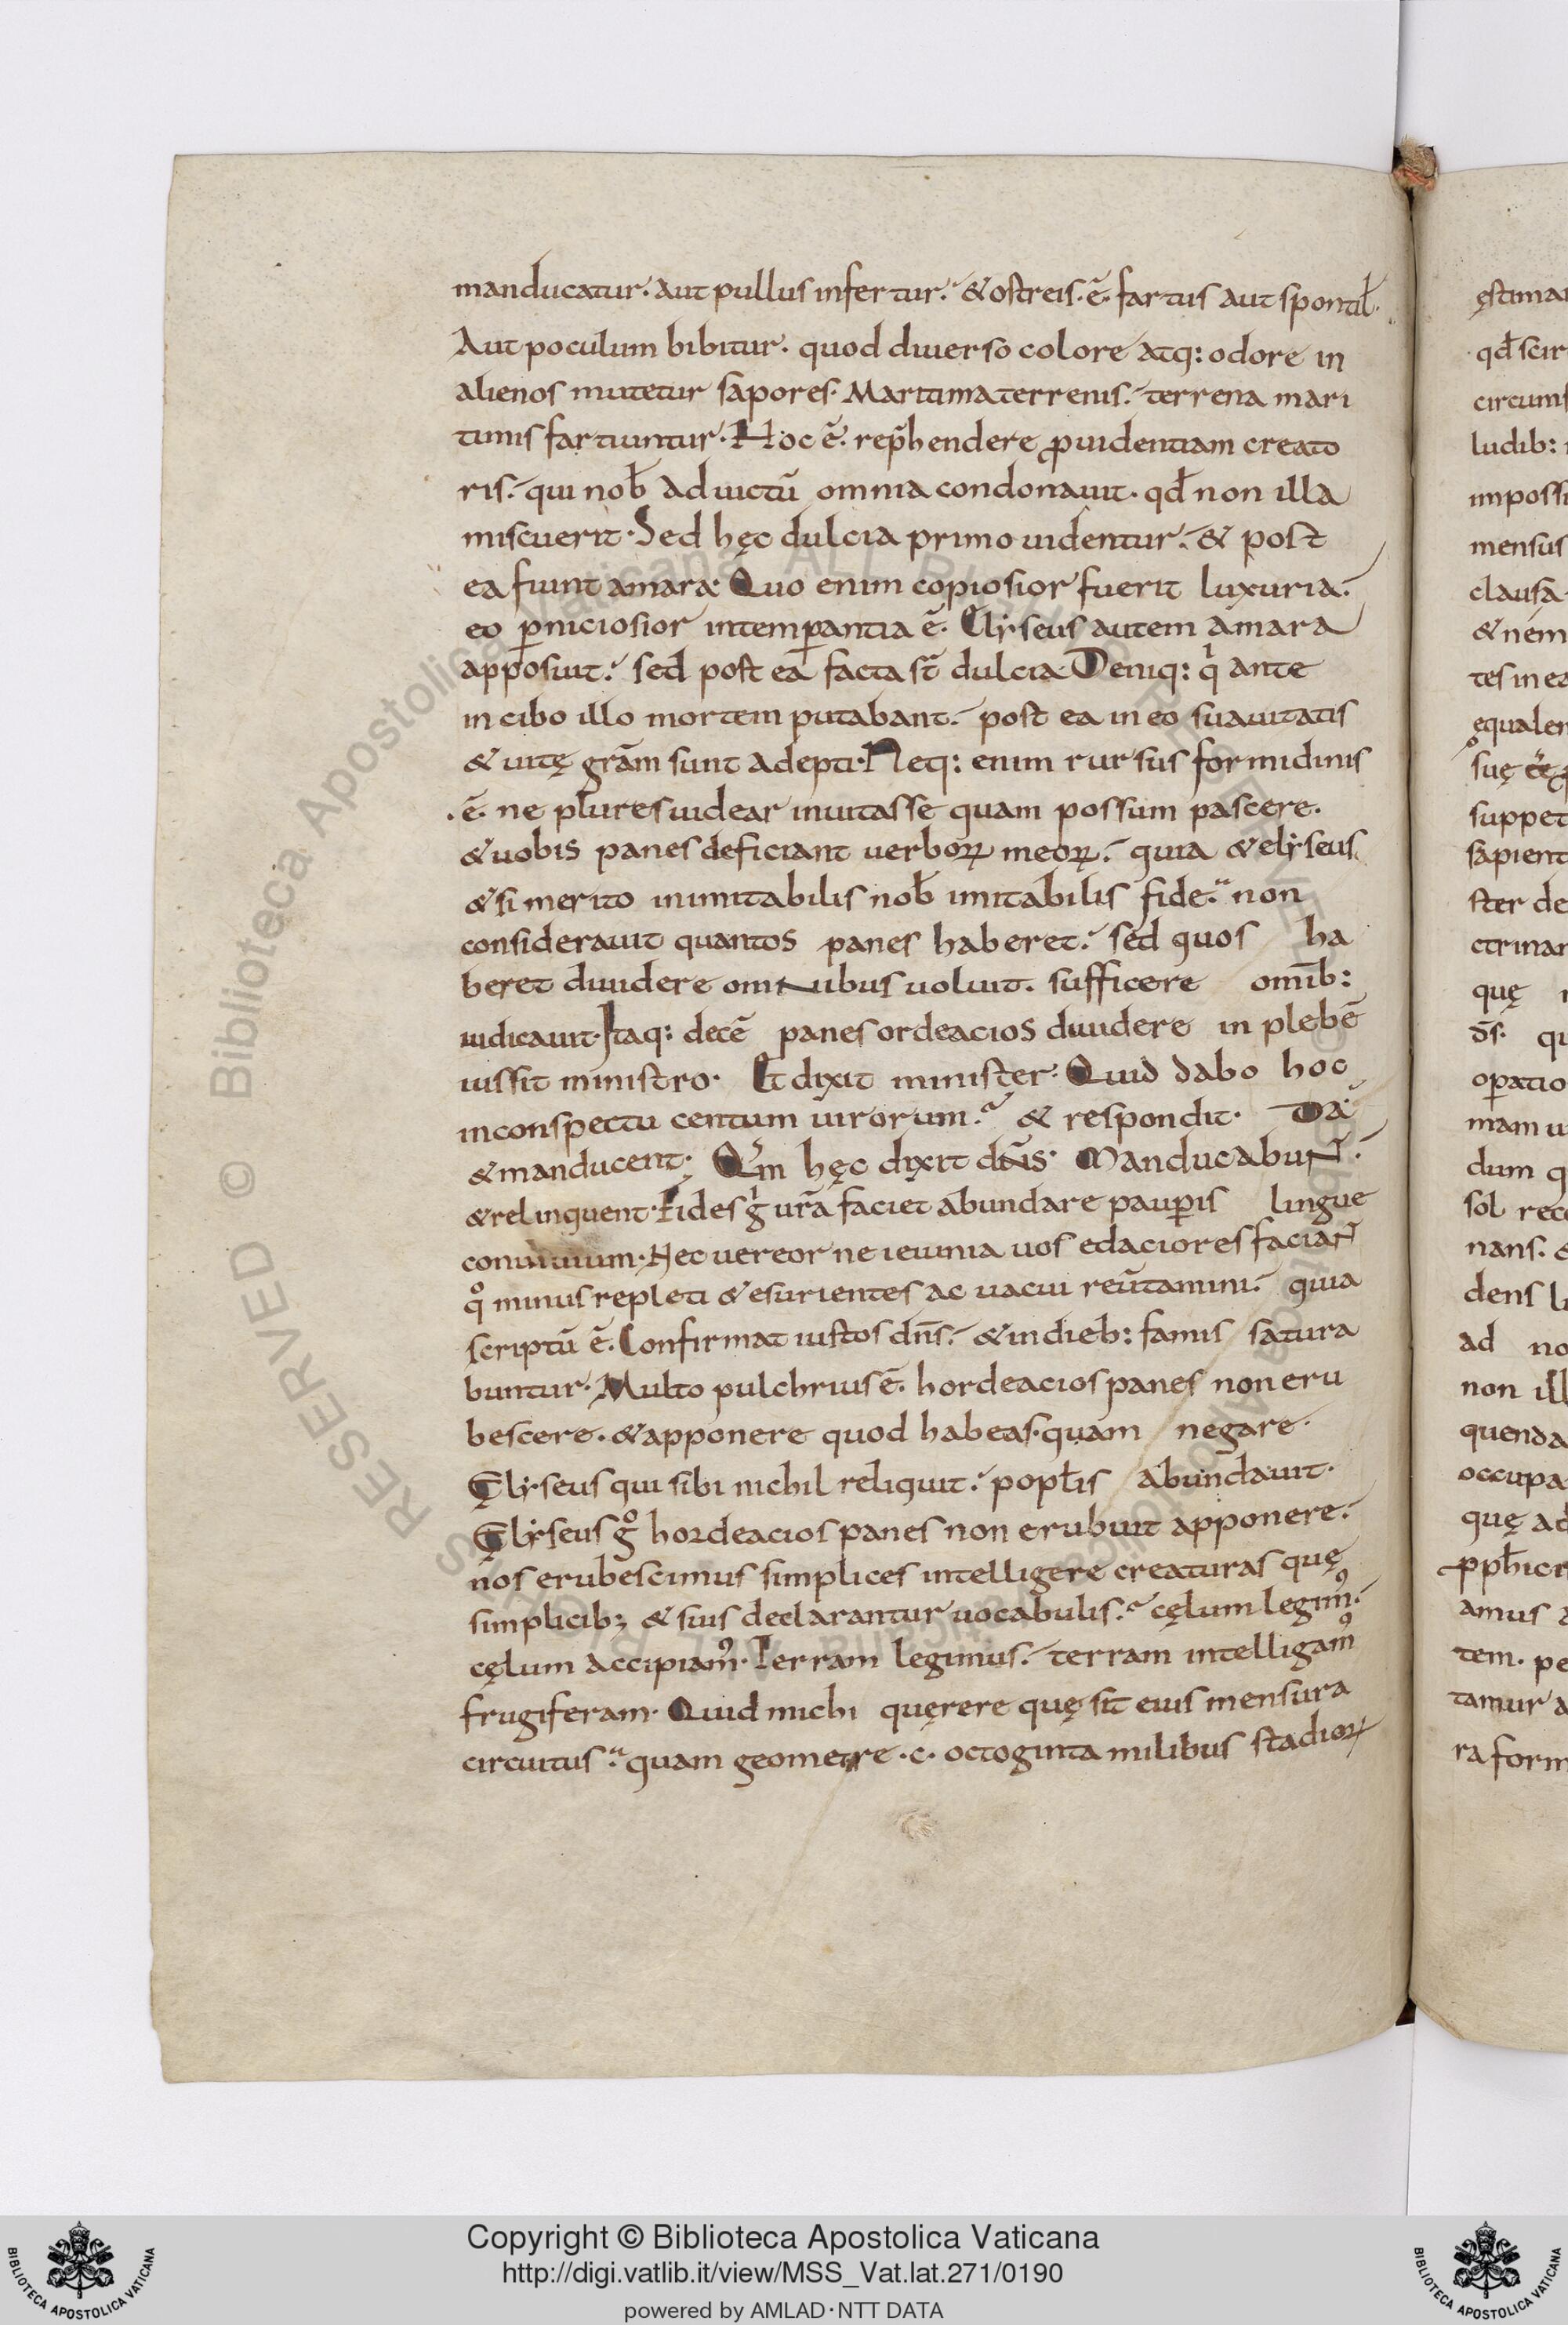 manducatur. aut pullus infertur. & ostreis. ē. fartus aut spontiƚ.
Aut poculum bibitur. quod diuerso colore atq: odore in
alienos mutetur sapores. Maritima terrenis. terrena mari
timis fartiuntur. Hoc ē. rep̄hendere ꝓuidentiam creato
ris. qui nob̄ ad uictū omnia condonauit. qđ non illa
miscuerit. Sed hęc dulcia primo uidentur. & post
ea fiunt amara. Quo enim copiosior fuerit luxuria.
eo ꝑniciosior intemꝑantia ē. Elyseus autem amara
apposuit. sed post ea facta st̄ dulcia. Deniq: qͥ ante
in cibo illo mortem putabant. post ea in eo suauitatis
& uitę grām sunt adepti. Neq: enim rursus formidinis
. ē. ne plures uidear inuitasse quam possum pascere.
& uobis panes deficiant uerboꝝ meoꝝ. quia & elyseus
& si merito inimitabilis nob̄ imitabilis fide. non
considerauit quantos panes haberet. sed quos ha
beret diuidere omnibus uoluit. sufficere om̄ib:
iudicauit. Itaq: decē panes ordeacios diuidere in plebē
iussit ministro. Et dixit minister. Quid dabo hoc
in conspectu centum uirorum. & respondit. Da
& manducent. Qm̄ hęc dixit dn̄is. Manducabunt̄.
& relinquent. Fides gͥ ur̄a faciet abundare pauꝑis lingue
conuiuium. Nec uereor ne ieiunia uos edaciores faciant̄
qͦ minus repleti & esurientes ac uacui reūtamini. quia
scriptū ē. Confirmat iustos dn̄s. & in dieb: famis satura
buntur. Multo pulchrius ē. hordeacios panes non eru
bescere. & apponere quod habeas. quam negare.
Elyseus qui sibi nichil reliquit. popƚis abundauit.
Elyseus gͦ hordeacios panes non erubuit apponere.
nos erubescimus simplices intelligere creaturas quę
simplicibꝫ & suis declarantur uocabulis. cęlum legimꝰ.
cęlum accipiamꝰ. Terram legimus. terram intelligamꝰ
frugiferam. Quid michi quęrere quę sit eius mensura
circuitus. quam geometre .c. octoginta milibus stadioꝝ
ęstima
qđ scir
circums
ludib:
imposs
mensus
clausa
& nem
tes in ea
equaler
suę
suppet
sapient
ster de
ctrinar
quę
ds̄. qu
oꝑatio
mam u
dum q
sol rec
nans. &
dens lu
ad no
non ill
quenda
occupa
quę ad
ꝓph̄ici
amus a
tem. pe
tamur a
ra form
© Biblioteca Apostolica Vaticana ALL RIGHTS RESERVED
Copyright © Biblioteca Apostolica Vaticana
http://digi.vatlib.it/view/MSS_Vat.lat.271/0190
powered by AMLAD·NTT DATA
BIBLIOTECA APOSTOLICA VATICANA
BIBLIOTECA APOSTOLICA VATICANA